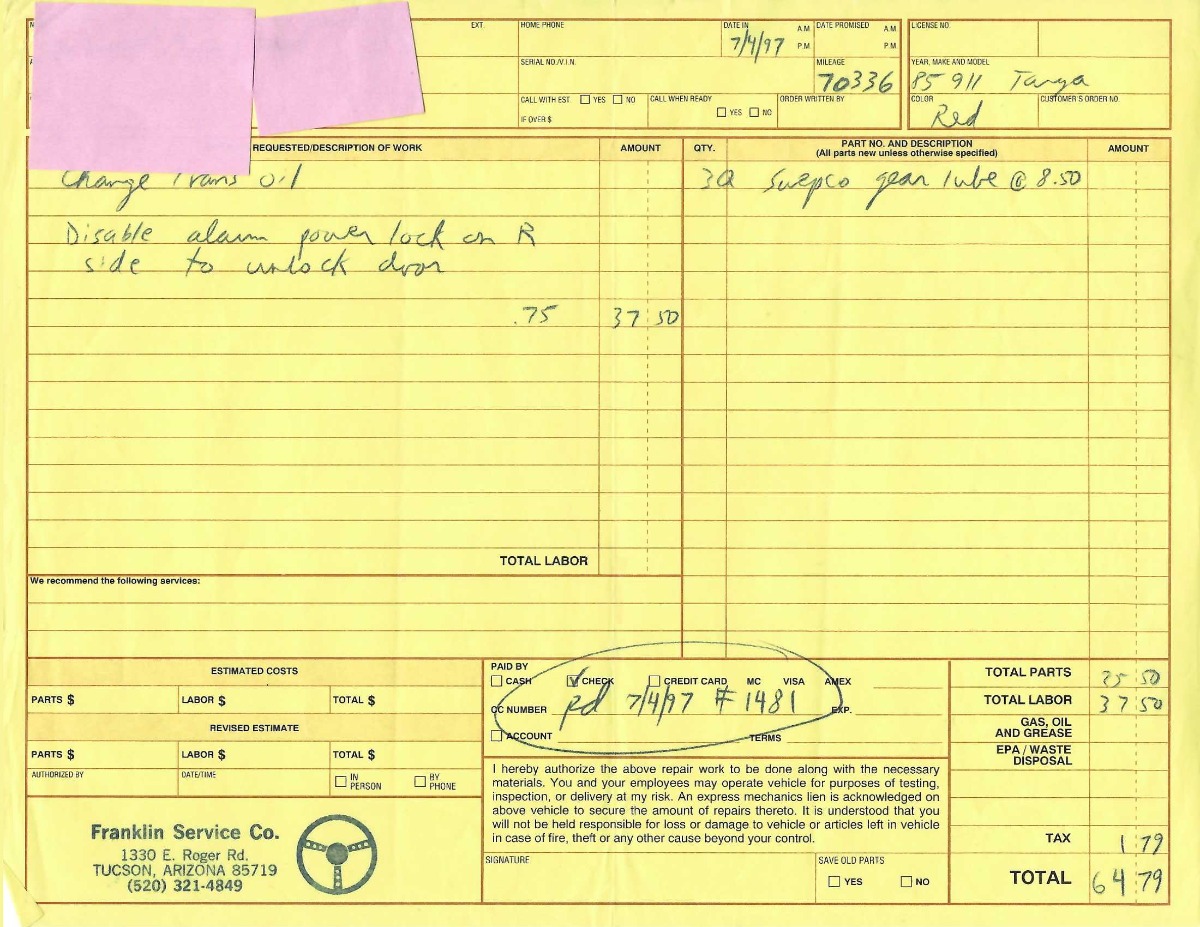 EXT.
HOME PHONE
DATE IN
A M
P M
7/4/97
DATE PROMISED
A M
P M
LICENSE NO.
SERIAL NO./V.I.N.
MILEAGE
70336
YEAR, MAKE AND MODEL
85 911 Targa
CALL WITH EST. YES NO
IF OVER $
CALL WHEN READY
YES NO
ORDER WRITTEN BY
COLOR
Red
CUSTOMER'S ORDER NO.
REQUESTED/DESCRIPTION OF WORK
AMOUNT
QTY.
PART NO. AND DESCRIPTION
(All parts new unless otherwise specified)
AMOUNT
Change Trans oil
3Q Swepco gear lube @ 8.50
Disable alarm power lock on R
side to unlock door
.75 37 50
TOTAL LABOR
We recommend the following services:
ESTIMATED COSTS
PARTS $ LABOR $ TOTAL $
REVISED ESTIMATE
PARTS $ LABOR $ TOTAL $
AUTHORIZED BY
DATE/TIME
IN PERSON
BY PHONE
Franklin Service Co.
1330 E. Roger Rd.
TUCSON, ARIZONA 85719
(520) 321-4849
PAID BY
CASH CHECK CREDIT CARD MC VISA AMEX
CC NUMBER pd 7/4/97 # 1481 EXP.
ACCOUNT TERMS
I hereby authorize the above repair work to be done along with the necessary
materials. You and your employees may operate vehicle for purposes of testing,
inspection, or delivery at my risk. An express mechanics lien is acknowledged on
above vehicle to secure the amount of repairs thereto. It is understood that you
will not be held responsible for loss or damage to vehicle or articles left in vehicle
in case of fire, theft or any other cause beyond your control.
SIGNATURE
SAVE OLD PARTS
YES NO
TOTAL PARTS 25 50
TOTAL LABOR 37 50
GAS, OIL
AND GREASE
EPA / WASTE
DISPOSAL
TAX 1 79
TOTAL 64 79